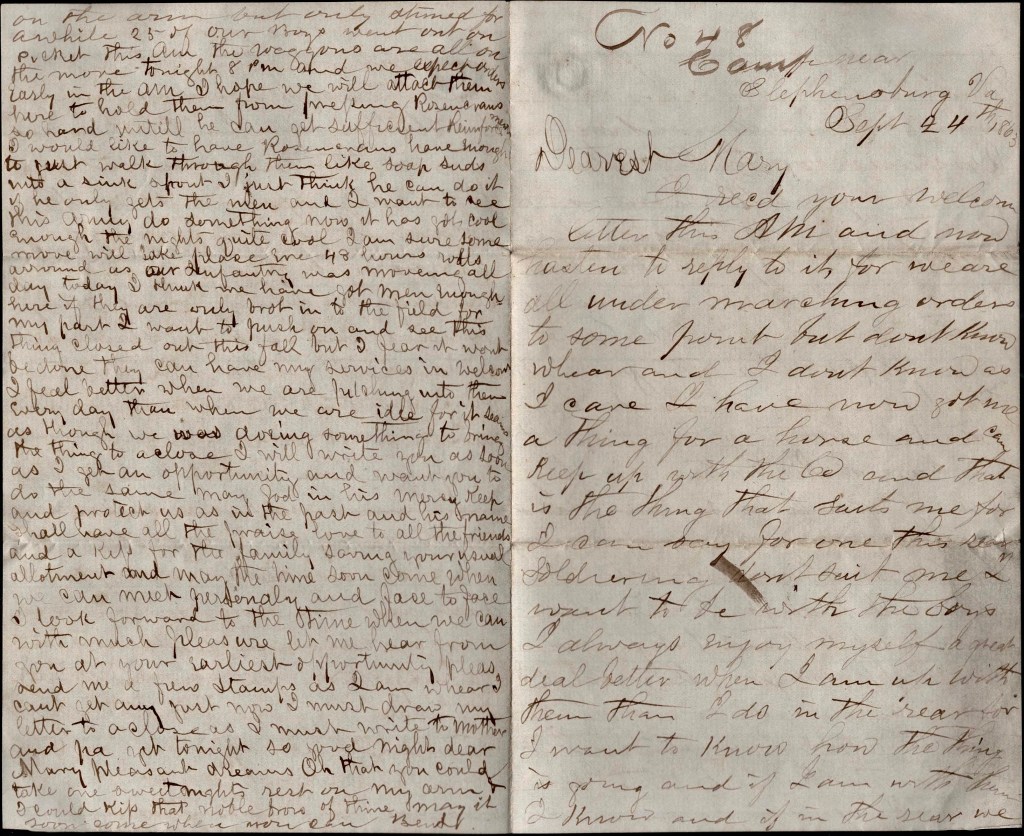 on the arm but only stuned for
awhile 25 of our Boys went out on
picket this Am the waggons are all on
the move tonight 8 Pm and we expect orders
Early in the AM I hope we will attact them
here to hold them from pressing Rosencrans
so hard untill he can get sufficient Reinforcments
I would like to have Rosencrans have enough
to just walk through them like soap suds
into a sink spout I just think he can do it
if he only gets the men and I want to see
this Army do something now it has got cool
enough the nights quite cool I am sure some
move will take place in 48 hours
arround as our infantry was moveing all
day today I think we have got men enough
here if they are only brot in to the field for
my part I want to push on and see this
thing closed out this fall but I fear it wont
be done they can have my services in welcom
I feal better when we are pitching into them
every day than when we are idle for it seams
as though we was doeing something to bring
the thing to aclose I will write you as soon
as I get an opportunity and want you to
do the same may God in his mersy keep
and protect us as in the past and his name
shall have all the praise love to all the friends
and a kiss for the family saving your usual
allotment and may the time soon come when
we can meet personaly and face to face
I look forward to the time when we can
with much pleasure let me hear from
you at your earliest opportunity pleas
send me a few stamps as I am whear I
cant get any just now I must draw my
letter to aclose as I must write to Mother
and pa yet tonight so good night dear
Mary pleasant dreams Oh that you could
take one sweet nights rest on my arm &
I could kiss that noble brow of thine may it
soon come when you can Bend
No 48
Camp near
Stephensburg Va
Sept 24th 1863
Dearest Mary
I recd your welcom
letter this AM and now
hasten to reply to it for we are
all under marching orders
to some point but dont know
whear and I dont know as
I care I have now got me
a thing for a horse and can
keep up with the Co and that
is the thing that suits me for
I can say for one this rear
Soldiering dont suit me I
want to be with the boys
I always enjoy myself a great
deal better when I am up with
them than I do in the rear for
I want to know how the thing
is going and if I am with them
I know and if in the rear we